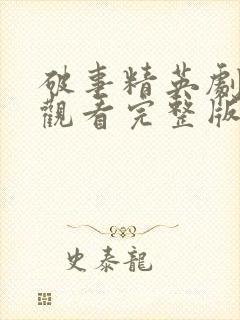 破事精英劇
觀看完整版
史泰龍